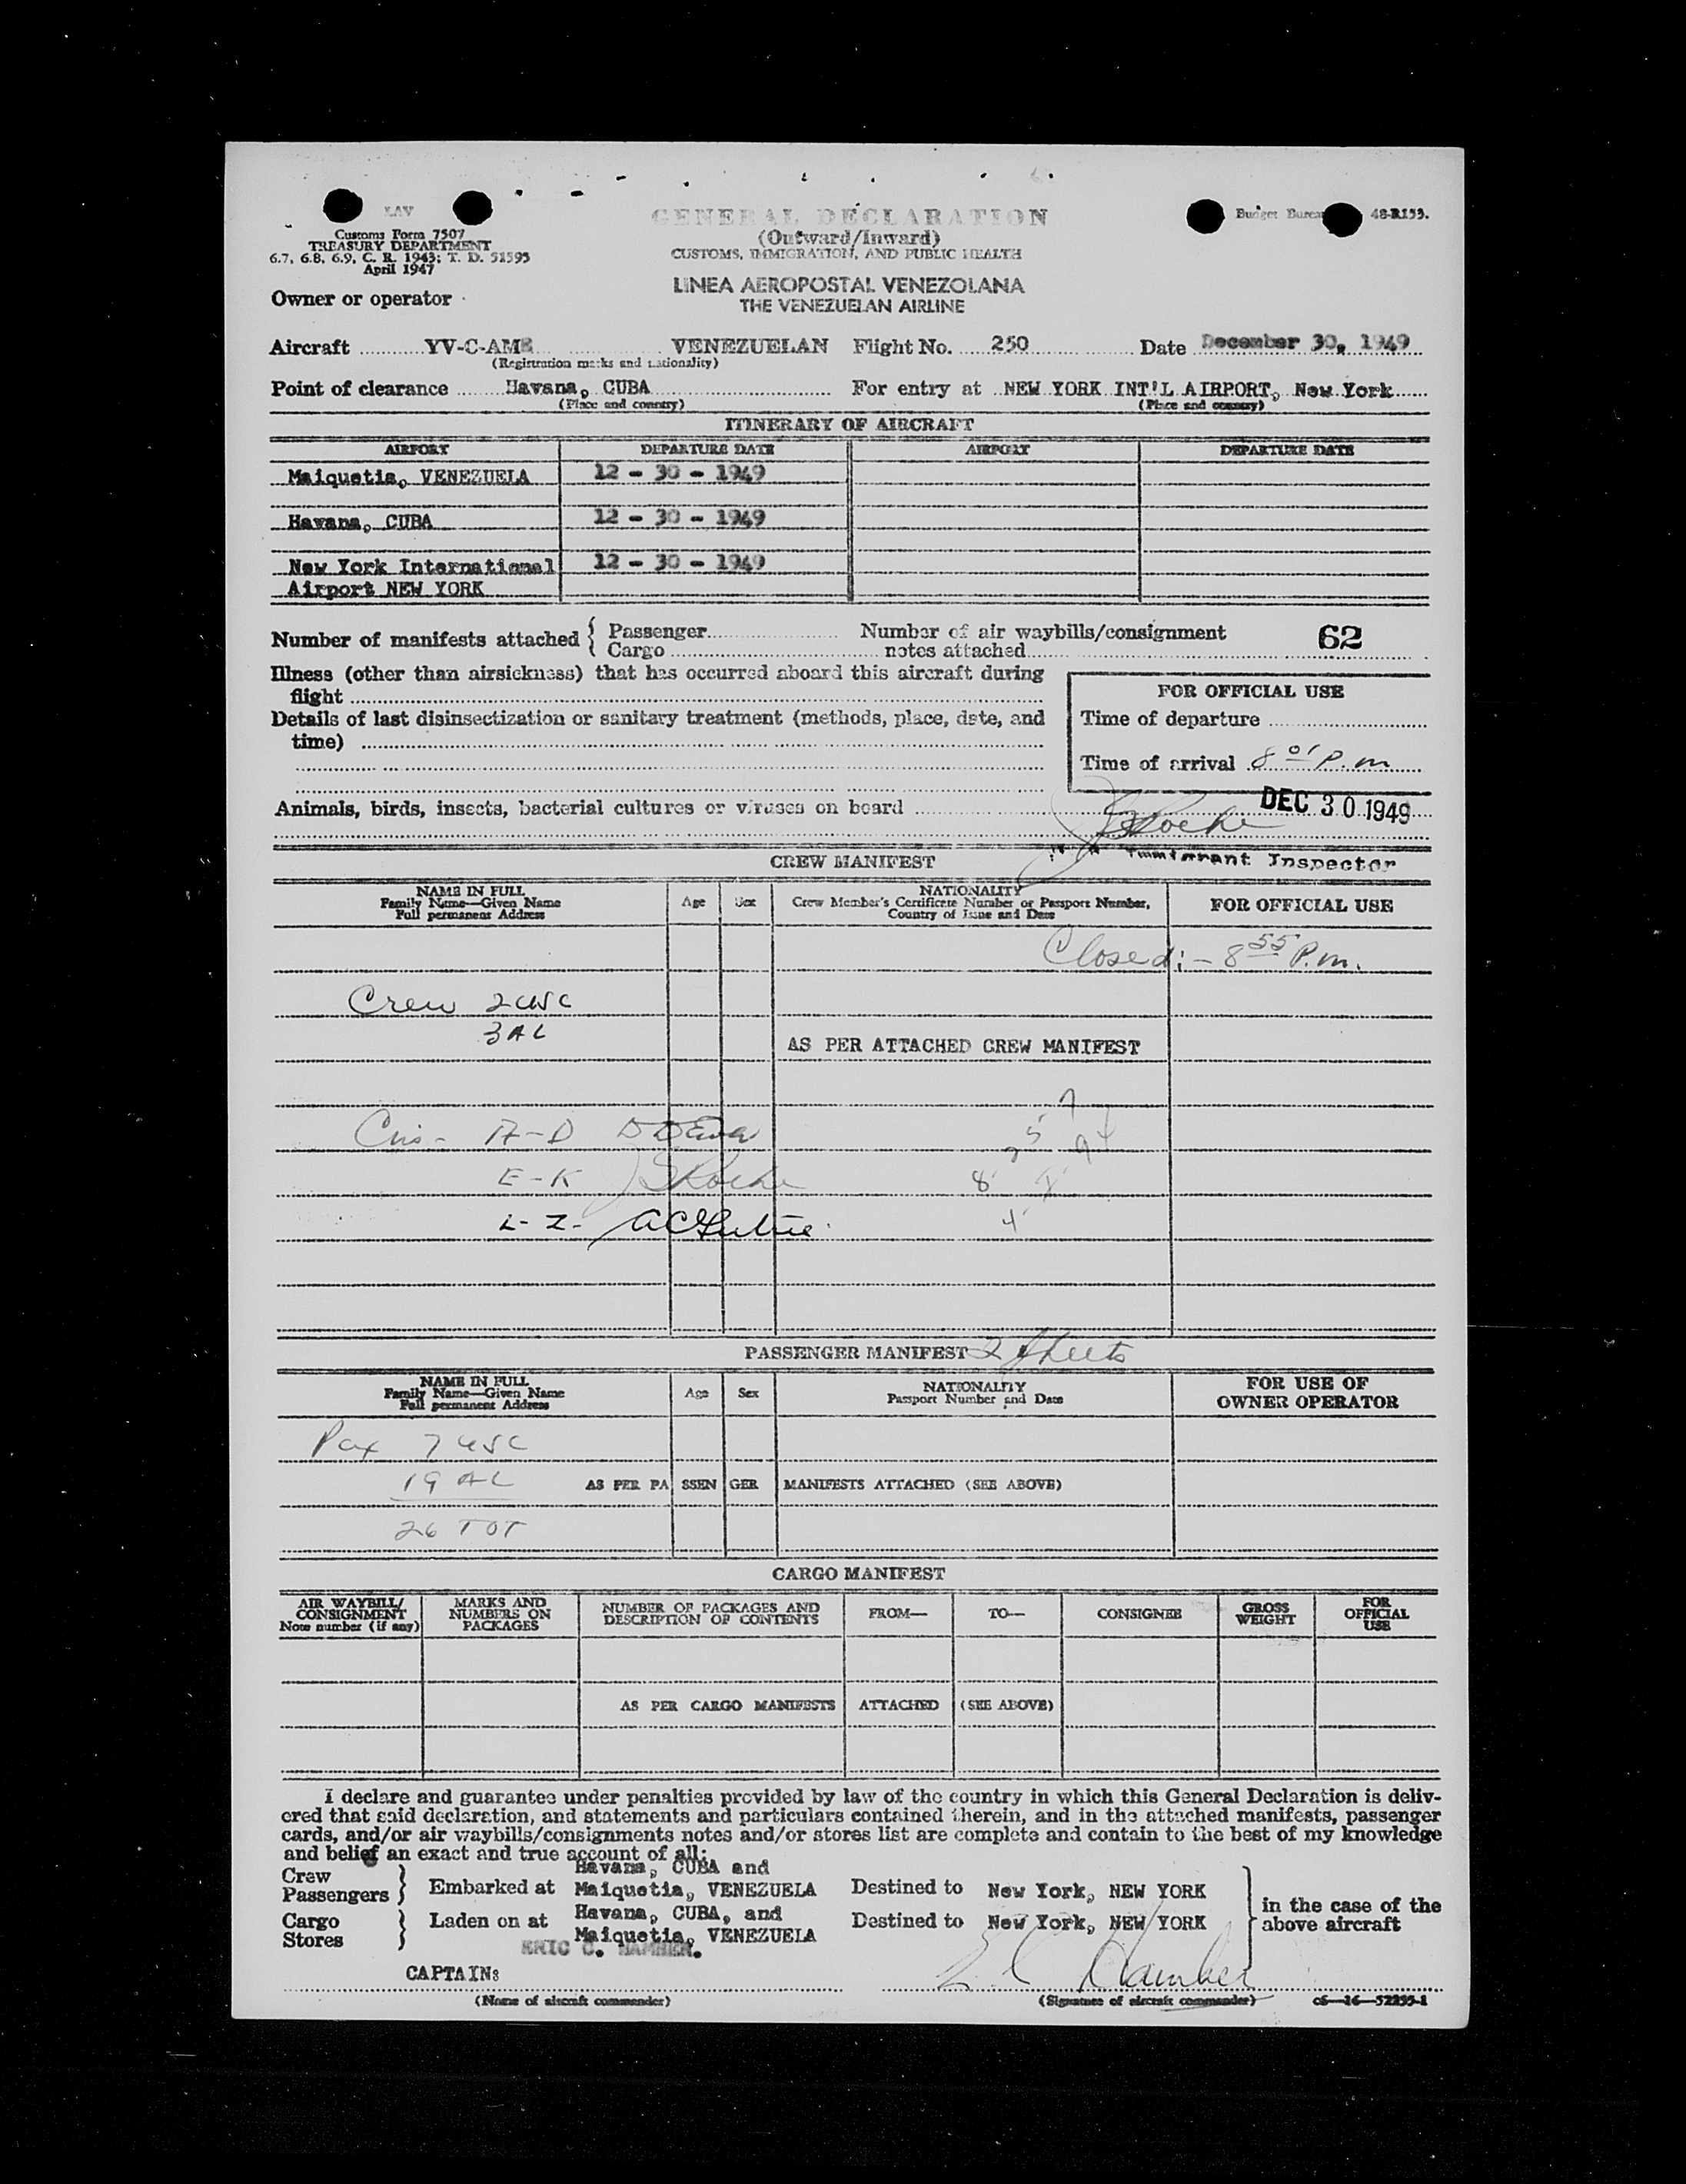 LAV
Customs Form 7507
TREASURY DEPARTMENT
6.7, 6.8, 6.9, C. R. 1943; T. D. 51595
April 1947
GENERAL DECLARATION
(Outward/Inward)
CUSTOMS, IMMIGRATION, AND PUBLIC HEALTH
Budget Bureau 48-R133.
LINEA AEROPOSTAL VENEZOLANA
THE VENEZUELAN AIRLINE
Owner or operator
Aircraft YV-C-AME VENEZUELAN Flight No. 250 Date December 30, 1949
(Registration marks and nationality)
Point of clearance Havana, CUBA For entry at NEW YORK INT'L AIRPORT, New York
(Place and country) (Place and country)
ITINERARY OF AIRCRAFT
AIRPORT DEPARTURE DATE AIRPORT DEPARTURE DATE
Maiquetia, VENEZUELA 12 - 30 - 1949
Havana, CUBA 12 - 30 - 1949
New York International 12 - 30 - 1949
Airport NEW YORK
Number of manifests attached { Passenger
Cargo
Number of air waybills/consignment
notes attached 62
Illness (other than airsickness) that has occurred aboard this aircraft during
flight
Details of last disinsectization or sanitary treatment (methods, place, date, and
time)
FOR OFFICIAL USE
Time of departure
Time of arrival 8 01 P.m
Animals, birds, insects, bacterial cultures or viruses on board
DEC 30 1949
JSRoche
Immigrant Inspector
CREW MANIFEST
NAME IN FULL
Family Name—Given Name
Full permanent Address
Age Sex
NATIONALITY
Crew Member's Certificate Number or Passport Number,
Country of Issue and Date
FOR OFFICIAL USE
Closed:- 8 55 P.m.
Crew 2 USC
3 AL
AS PER ATTACHED CREW MANIFEST
A-D
E-K JSRoche
L-Z-
PASSENGER MANIFEST 2 Sheets
NAME IN FULL
Family Name—Given Name
Full permanent Address
Age Sex
NATIONALITY
Passport Number and Date
FOR USE OF
OWNER OPERATOR
Pax 7 USC
19 AL
AS PER PASSENGER MANIFESTS ATTACHED (SEE ABOVE)
26 TOT
CARGO MANIFEST
AIR WAYBILL/
CONSIGNMENT
Note number (if any)
MARKS AND
NUMBERS ON
PACKAGES
NUMBER OF PACKAGES AND
DESCRIPTION OF CONTENTS
FROM— TO— CONSIGNEE
GROSS
WEIGHT
FOR
OFFICIAL
USE
AS PER CARGO MANIFESTS ATTACHED (SEE ABOVE)
I declare and guarantee under penalties provided by law of the country in which this General Declaration is deliv-
ered that said declaration, and statements and particulars contained therein, and in the attached manifests, passenger
cards, and/or air waybills/consignments notes and/or stores list are complete and contain to the best of my knowledge
and belief an exact and true account of all:
Crew
Passengers } Embarked at Havana, CUBA and
Maiquetia, VENEZUELA Destined to New York, NEW YORK
Cargo
Stores } Laden on at Havana, CUBA, and
Maiquetia, VENEZUELA Destined to New York, NEW YORK
in the case of the
above aircraft
ERIC C. HAMBER.
CAPTAIN:
E C Hamber
(Name of aircraft commander) (Signature of aircraft commander) c6—16—52255-1